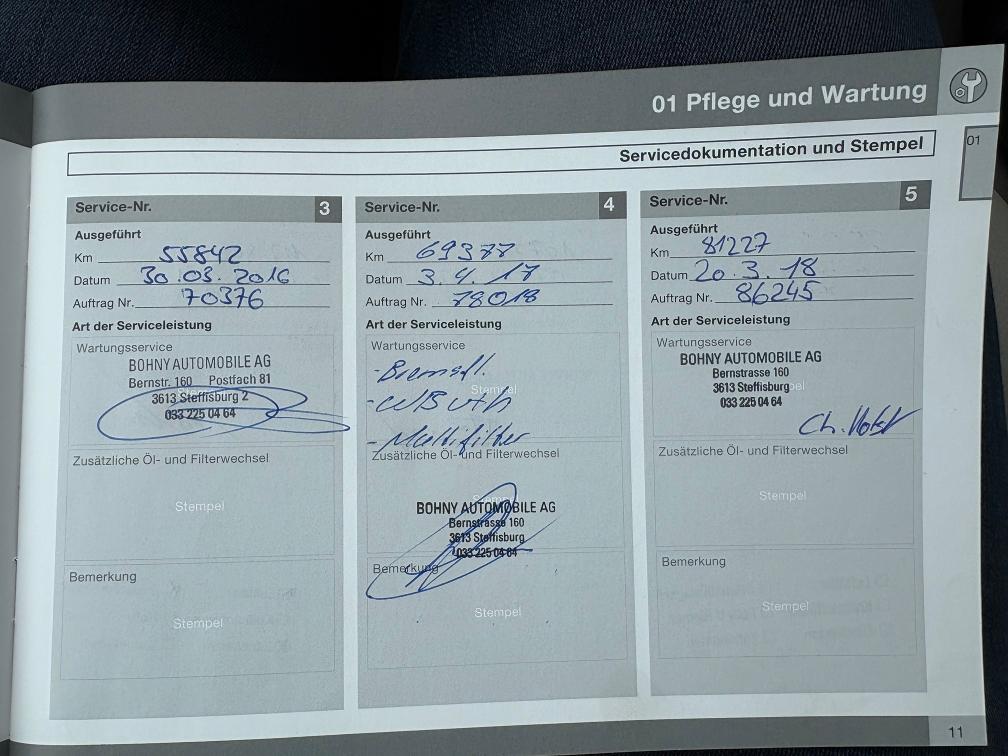 01 Pflege und Wartung
01
Servicedokumentation und Stempel
Service-Nr. 3
Ausgeführt
Km 55842
Datum 30.03.2016
Auftrag Nr. 70376
Art der Serviceleistung
Wartungsservice
BOHNY AUTOMOBILE AG
Bernstr. 160 Postfach 81
3613 Steffisburg 2
033 225 04 64
Zusätzliche Öl- und Filterwechsel
Stempel
Bemerkung
Stempel
Service-Nr. 4
Ausgeführt
Km 69377
Datum 3.4.17
Auftrag Nr. 78018
Art der Serviceleistung
Wartungsservice
- Bremsfl.
Stempel
- Multifilter
Zusätzliche Öl- und Filterwechsel
BOHNY AUTOMOBILE AG
Bernstrasse 160
3613 Steffisburg
033 225 04 64
Bemerkung
Stempel
Service-Nr. 5
Ausgeführt
Km 81227
Datum 20.3.18
Auftrag Nr. 86245
Art der Serviceleistung
Wartungsservice
BOHNY AUTOMOBILE AG
Bernstrasse 160
3613 Steffisburg
033 225 04 64
Zusätzliche Öl- und Filterwechsel
Stempel
Bemerkung
Stempel
11